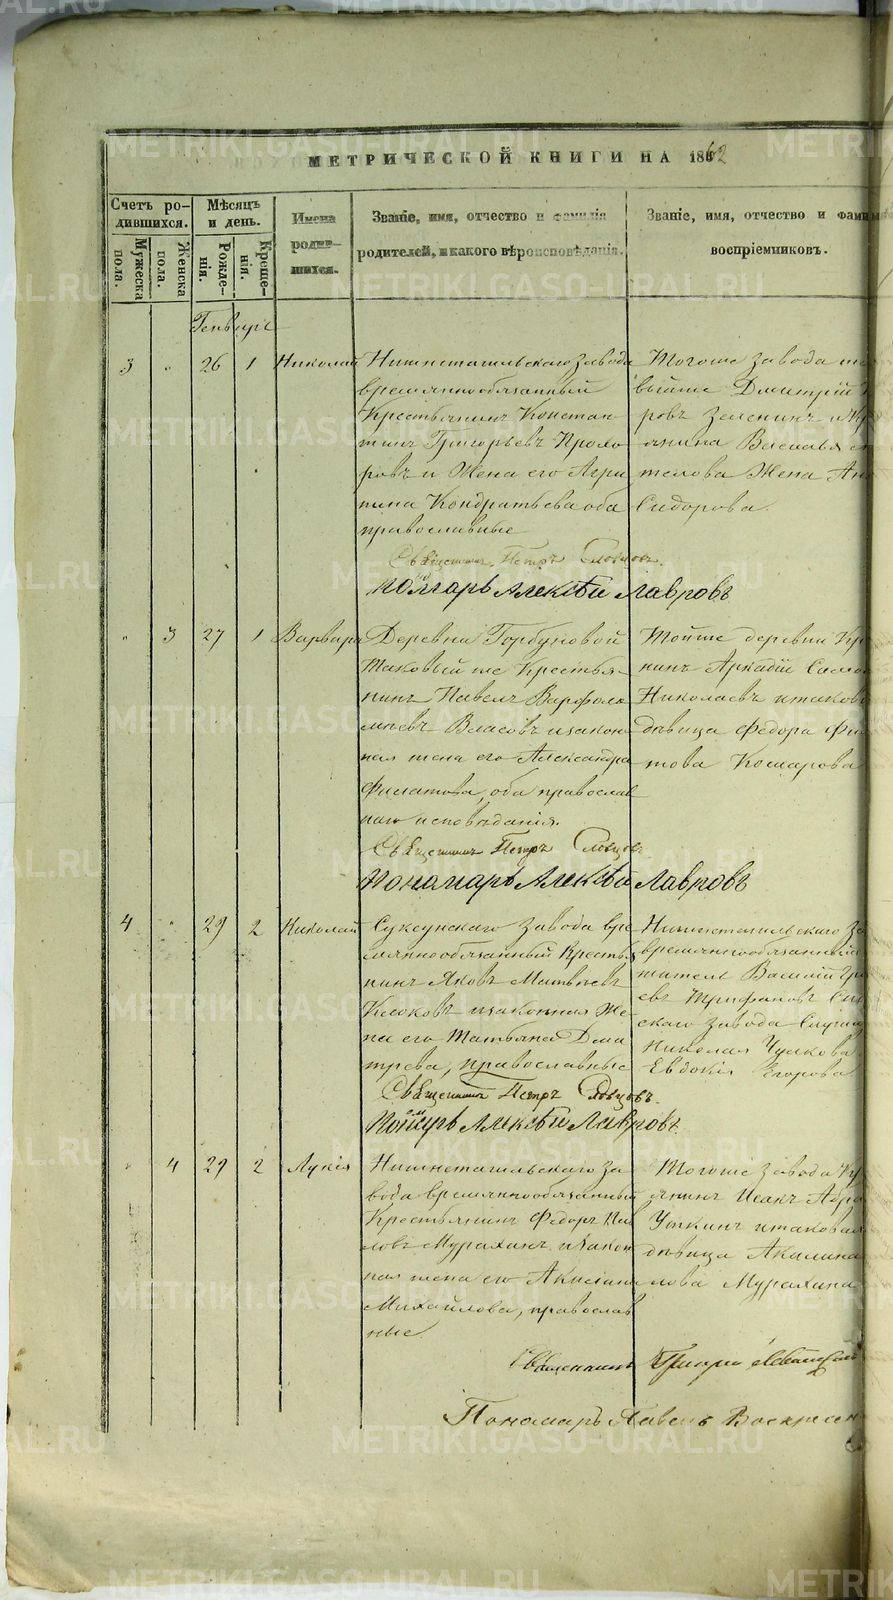 МЕТРИЧЕСКОЙ КНИГИ НА 1862
Счетъ ро-
дившихся.
Мужеска
пола.
Женска
пола.
Мѣсяцъ
и день.
Рожде-
нія.
Креще-
нія.
Имена
родив-
шихся.
Званіе, имя, отчество и фамилія
родителей, и какого вѣроисповѣданія.
Званіе, имя, отчество и фами
воспріемниковъ.
Генварь
3 " 26 1 Николай
Нижнетагильскаго завода
временнообязанный
Крестьянинъ Констан
тинъ Григорьевъ Прохо
ровъ и Жена его Агри
пина Кондратьева оба
православные
Тогоже завода
Дмитрій
ровъ Зеленинъ
Василья
телова Жена
Сидорова.
Священникъ Петръ Словцовъ.
Пономарь Алексѣй Лавровъ
" 3 27 1 Варвара
Деревни Горбуновой
таковый же Крестья-
нинъ Павелъ Варфоло
меевъ Власовъ изакон
ная жена его Александра
Филатова, оба православ
наго исповѣданія.
Тойже деревни Кр
нинъ Аркадій Само
Николаевъ итакова
дѣвица Федора Фи
това Комарова
Священникъ Петръ Словцовъ
Пономарь Алексѣй Лавровъ
4 " 29 2 Николай
Суксунскаго завода вре
мяннообязанный Крестья
нинъ Яковъ Матвѣевъ
изаконная Же
на его Татьяна Дми
трева, православные
Нижнетагильскаго за
времяннообязанный
Василій Гри
евъ Трифановъ
скаго завода
Николая Чулкова
Евдокія Егорова
Священникъ Петръ Словцовъ.
Алексѣй Лавровъ
" 4 29 2 Лукія
Нижнетагильскаго За
вода времяннообязанный
Крестьянинъ Федоръ Пав
ловъ Мурахинъ изакон
ная жена его Акилина
Михайлова, православ
ные.
Тогоже завода Кр
янинъ Исакъ Абра
Уткинъ итаковая
дѣвица Акилина
лова Мурахина
Священникъ Григорій
Пономарь Павелъ Воскресен
METRIKI.GASO-URAL.RU